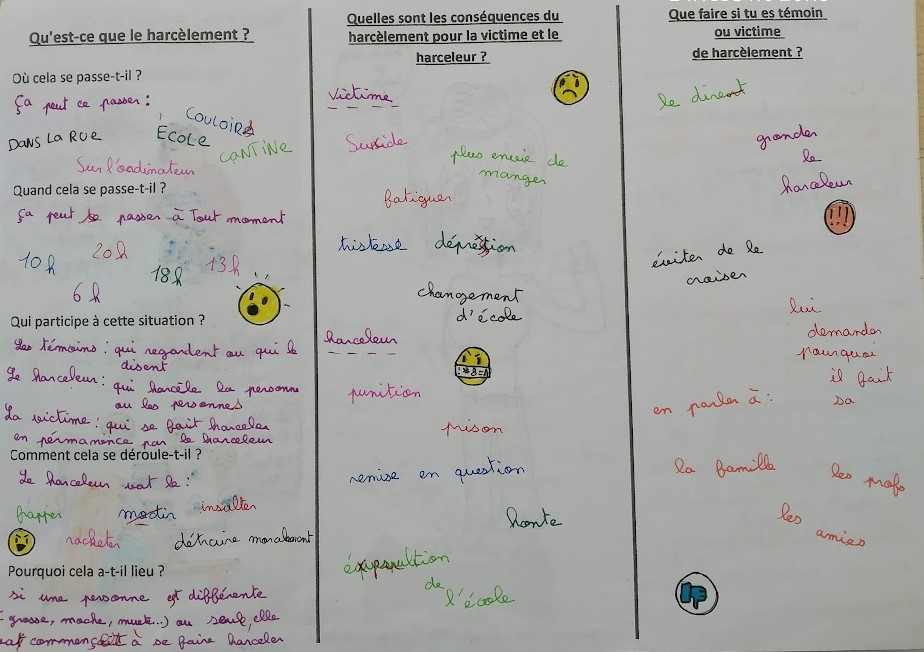 Qu'est-ce que le harcèlement ?
Où cela se passe-t-il ?
Ça peut ce passer :
DANS LA RUE
ÉCOLE
COULOIRS
CANTINE
Sur l'ordinateur
Quand cela se passe-t-il ?
Ça peut se passer à Tout moment
10h
20h
18h
13h
6h
Qui participe à cette situation ?
Les témoins : qui regardent ou qui le
disent
Le harceleur : qui harcèle la personne
ou les personnes
La victime : qui se fait harceler
en permanence par le harceleur
Comment cela se déroule-t-il ?
Le harceleur vat le :
frapper
insulter
racketer
détruire moralement
Pourquoi cela a-t-il lieu ?
si une personne est différente
grosse, moche, muete...) ou seule, elle
à se faire harceler
Quelles sont les conséquences du
harcèlement pour la victime et le
harceleur ?
Victime
Suicide
plus envie de
manger
fatiguer
tristesse
dépréstion
changement
d'école
harceleur
!*8=A
punition
prison
remise en question
honte
de
l'école
Que faire si tu es témoin
ou victime
de harcèlement ?
le dire
gronder
le
harceleur
!!!
éviter de le
croiser
lui
demander
pourquoi
il fait
sa
en parler à :
la famille
les profs
les amies